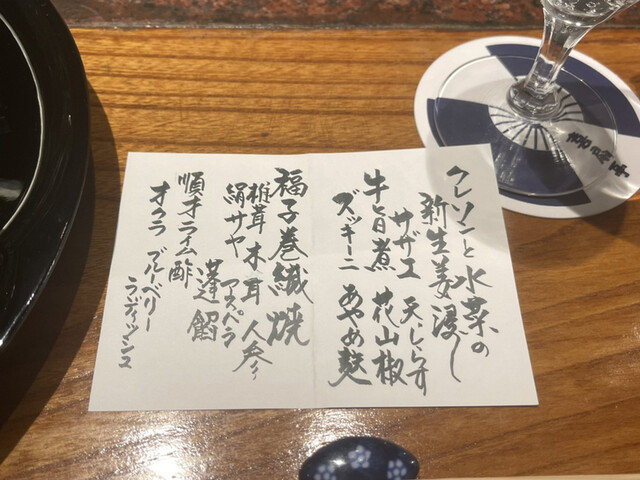 クレソンと水菜の
新生姜浸し
サザエ 天じらす
牛旨煮 花山椒
ズッキーニ あやめ麩
福子巻繊焼
椎茸 木耳 人参
絹サヤ アスパラ
蓬餡
順才ライム酢
オクラ ブルーベリー
ラディッシュ